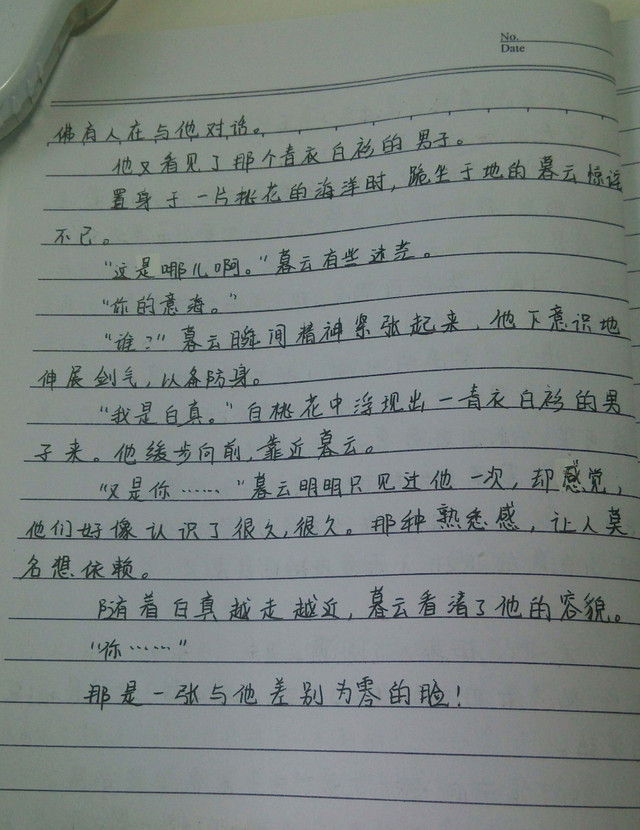 No.
Date
佛有人在与他对话。
他又看见了那个青衣白衫的男子。
置身于一片桃花的海洋时，跪坐于地的暮云惊诧
不已。
“这是哪儿啊。”暮云有些迷茫。
“你的意海。”
“谁？”暮云瞬间精神紧张起来，他下意识地
伸展剑气，以备防身。
“我是白真。”自桃花中浮现出一青衣白衫的男
子来。他缓步向前，靠近暮云。
“又是你……”暮云明明只见过他一次，却感觉，
他们好像认识了很久，很久。那种熟悉感，让人莫
名想依赖。
随着白真越走越近，暮云看清了他的容貌。
“你……”
那是一张与他差别为零的脸！